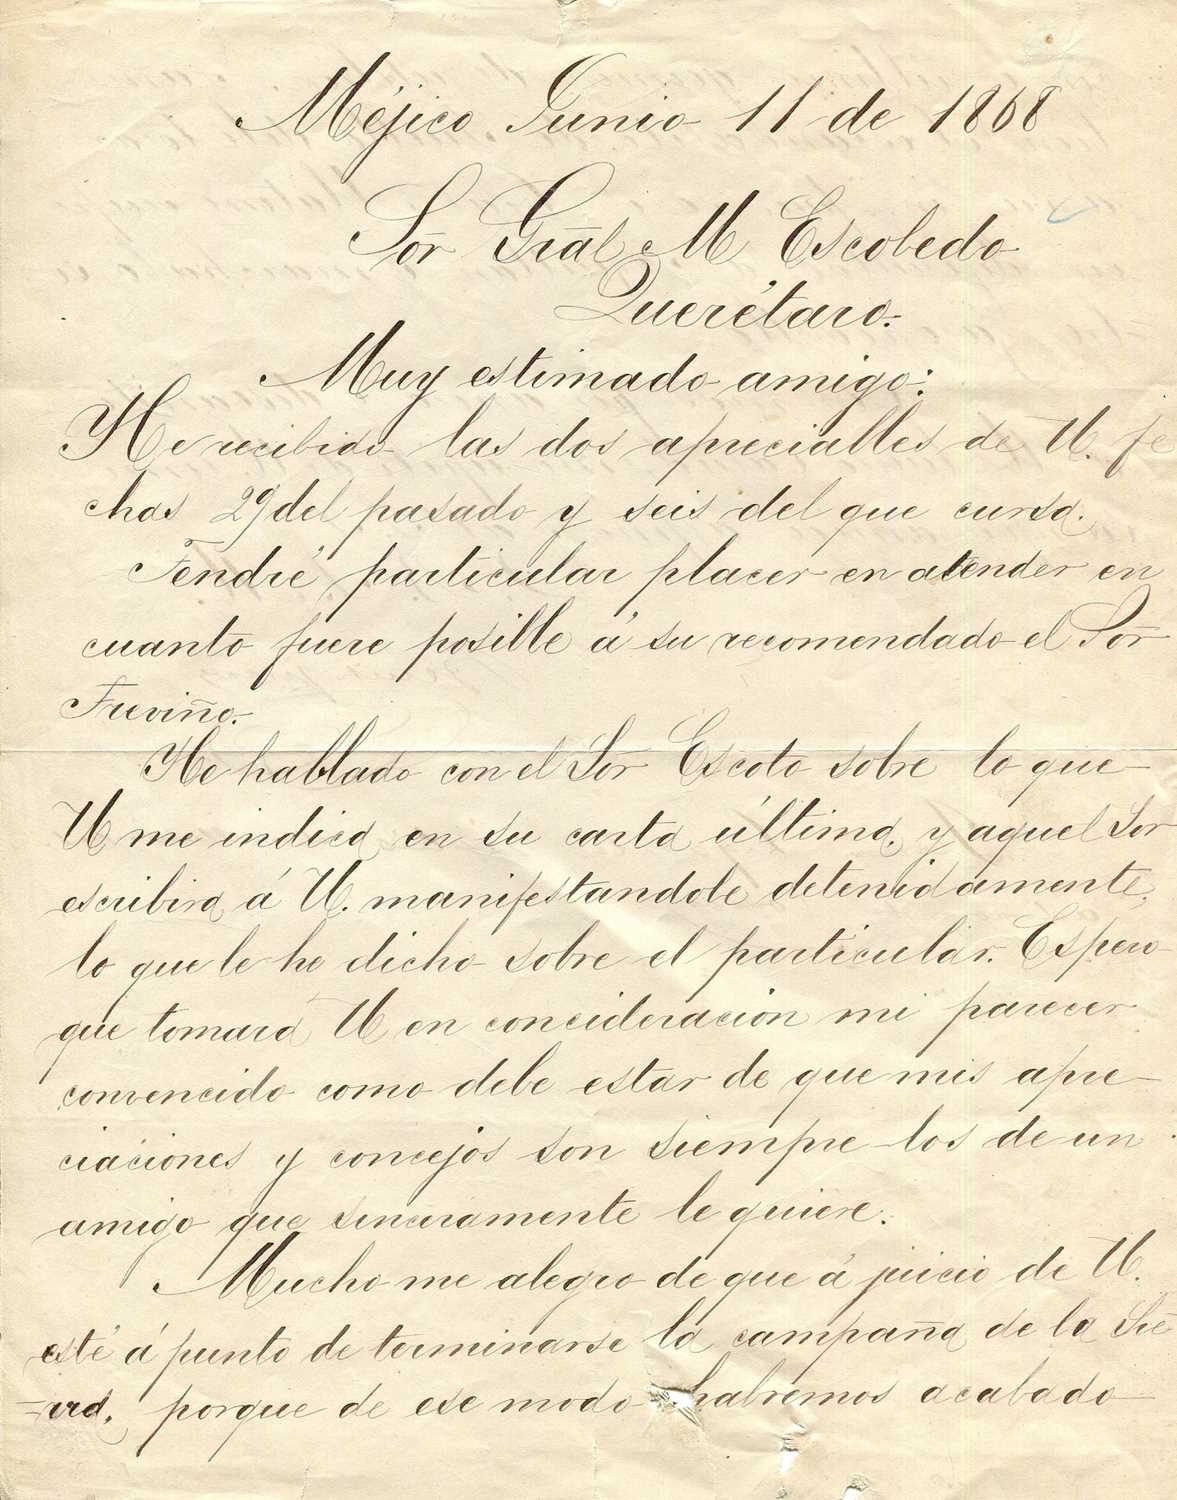 Méjico Junio 11 de 1868
Sor Gral M Escobedo
Querétaro.
Muy estimado amigo:
He recibido las dos apreciables de U. fe
chas 29 del pasado y seis del que cursa.
Tendré particular placer en atender en
cuanto fuere posible á su recomendado el Sor
Treviño.
He hablado con el Sor Escoto sobre lo que
U me indica en su carta última, y aquel Sor
escribirá á U. manifestandole detenidamente,
lo que le he dicho sobre el particular. Espero
que tomará U en concideración mi parecer
convencido como debe estar de que mis apre
ciaciones y concejos son siempre los de un
amigo que sinceramente le quiere.
Mucho me alegro de que á juicio de U.
esté á punto de terminarse la campaña de la Sie
rra, porque de ese modo habremos acabado